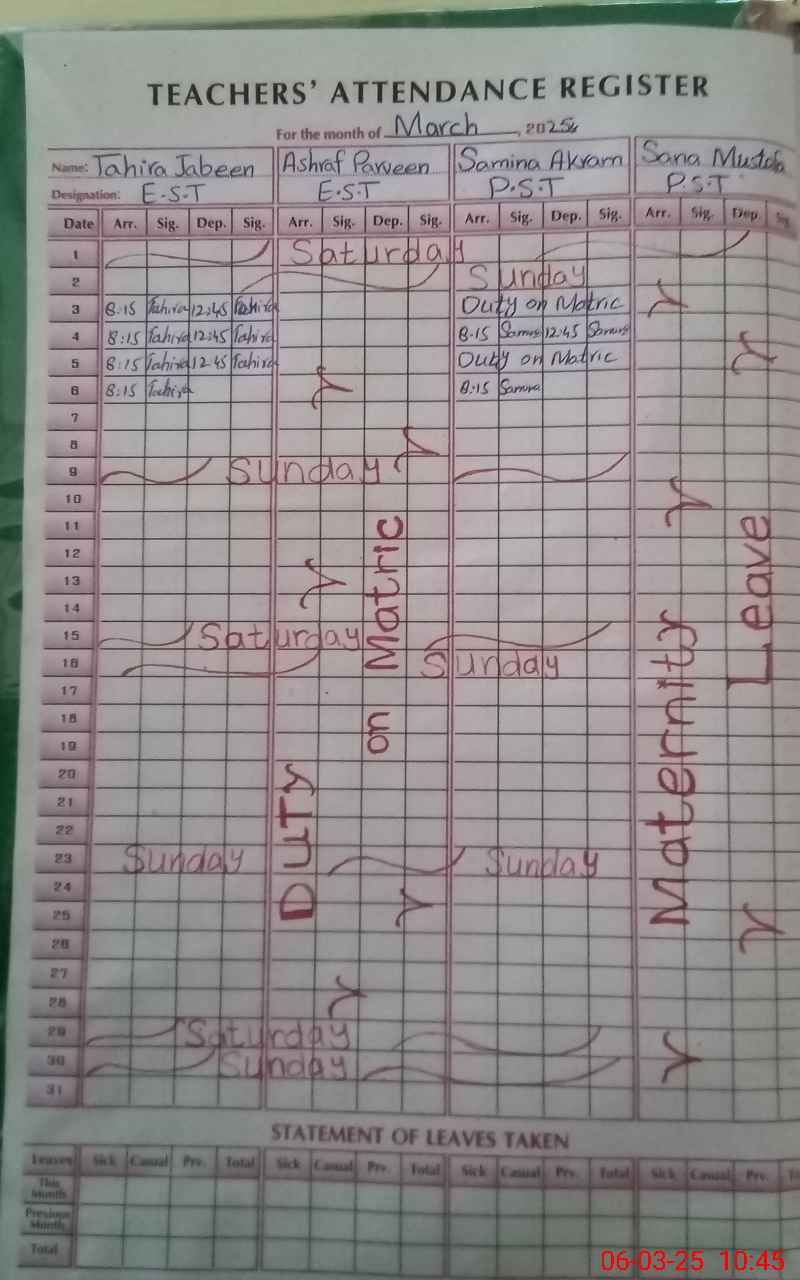 TEACHERS' ATTENDANCE REGISTER
For the month of March, 2025
Name: Tahira Jabeen Ashraf Parveen Samina Akram Sana Mustafa
Designation: E.S.T E.S.T P.S.T P.S.T
Date Arr. Sig. Dep. Sig. Arr. Sig. Dep. Sig. Arr. Sig. Dep. Sig. Arr. Sig. Dep. Sig.
1 Saturday
2 Sunday
3 8:15 Tahira 12:45 Tahira Duty on Matric
4 8:15 Tahira 12:45 Tahira 8.15 Samina 12:45 Samina
5 8:15 Tahira 12.45 Tahira Duty on Matric
6 8:15 Tahira 8:15 Samina
7
8
9 Sunday
10
11
12
13
14
15 Saturday
16 Sunday
17
18
19
20
21
22
23 Sunday Sunday
24
25
26
27
28
29 Saturday
30 Sunday
31
DUTY on Matric
Maternity Leave
STATEMENT OF LEAVES TAKEN
Leaves Sick Casual Prv. Total Sick Casual Prv. Total Sick Casual Prv. Total Sick Casual Prv.
This Month
Previous Month
Total
06-03-25 10:45